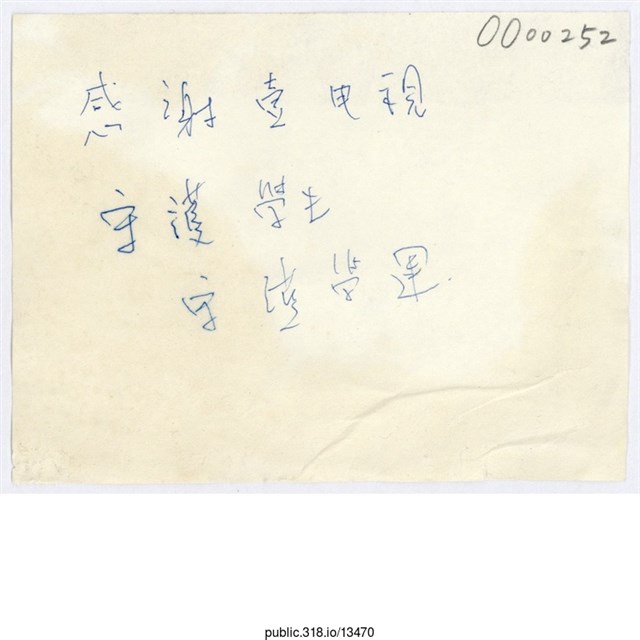 0000252
感謝壹电視
守護學生
守護学運
public.318.io/13470